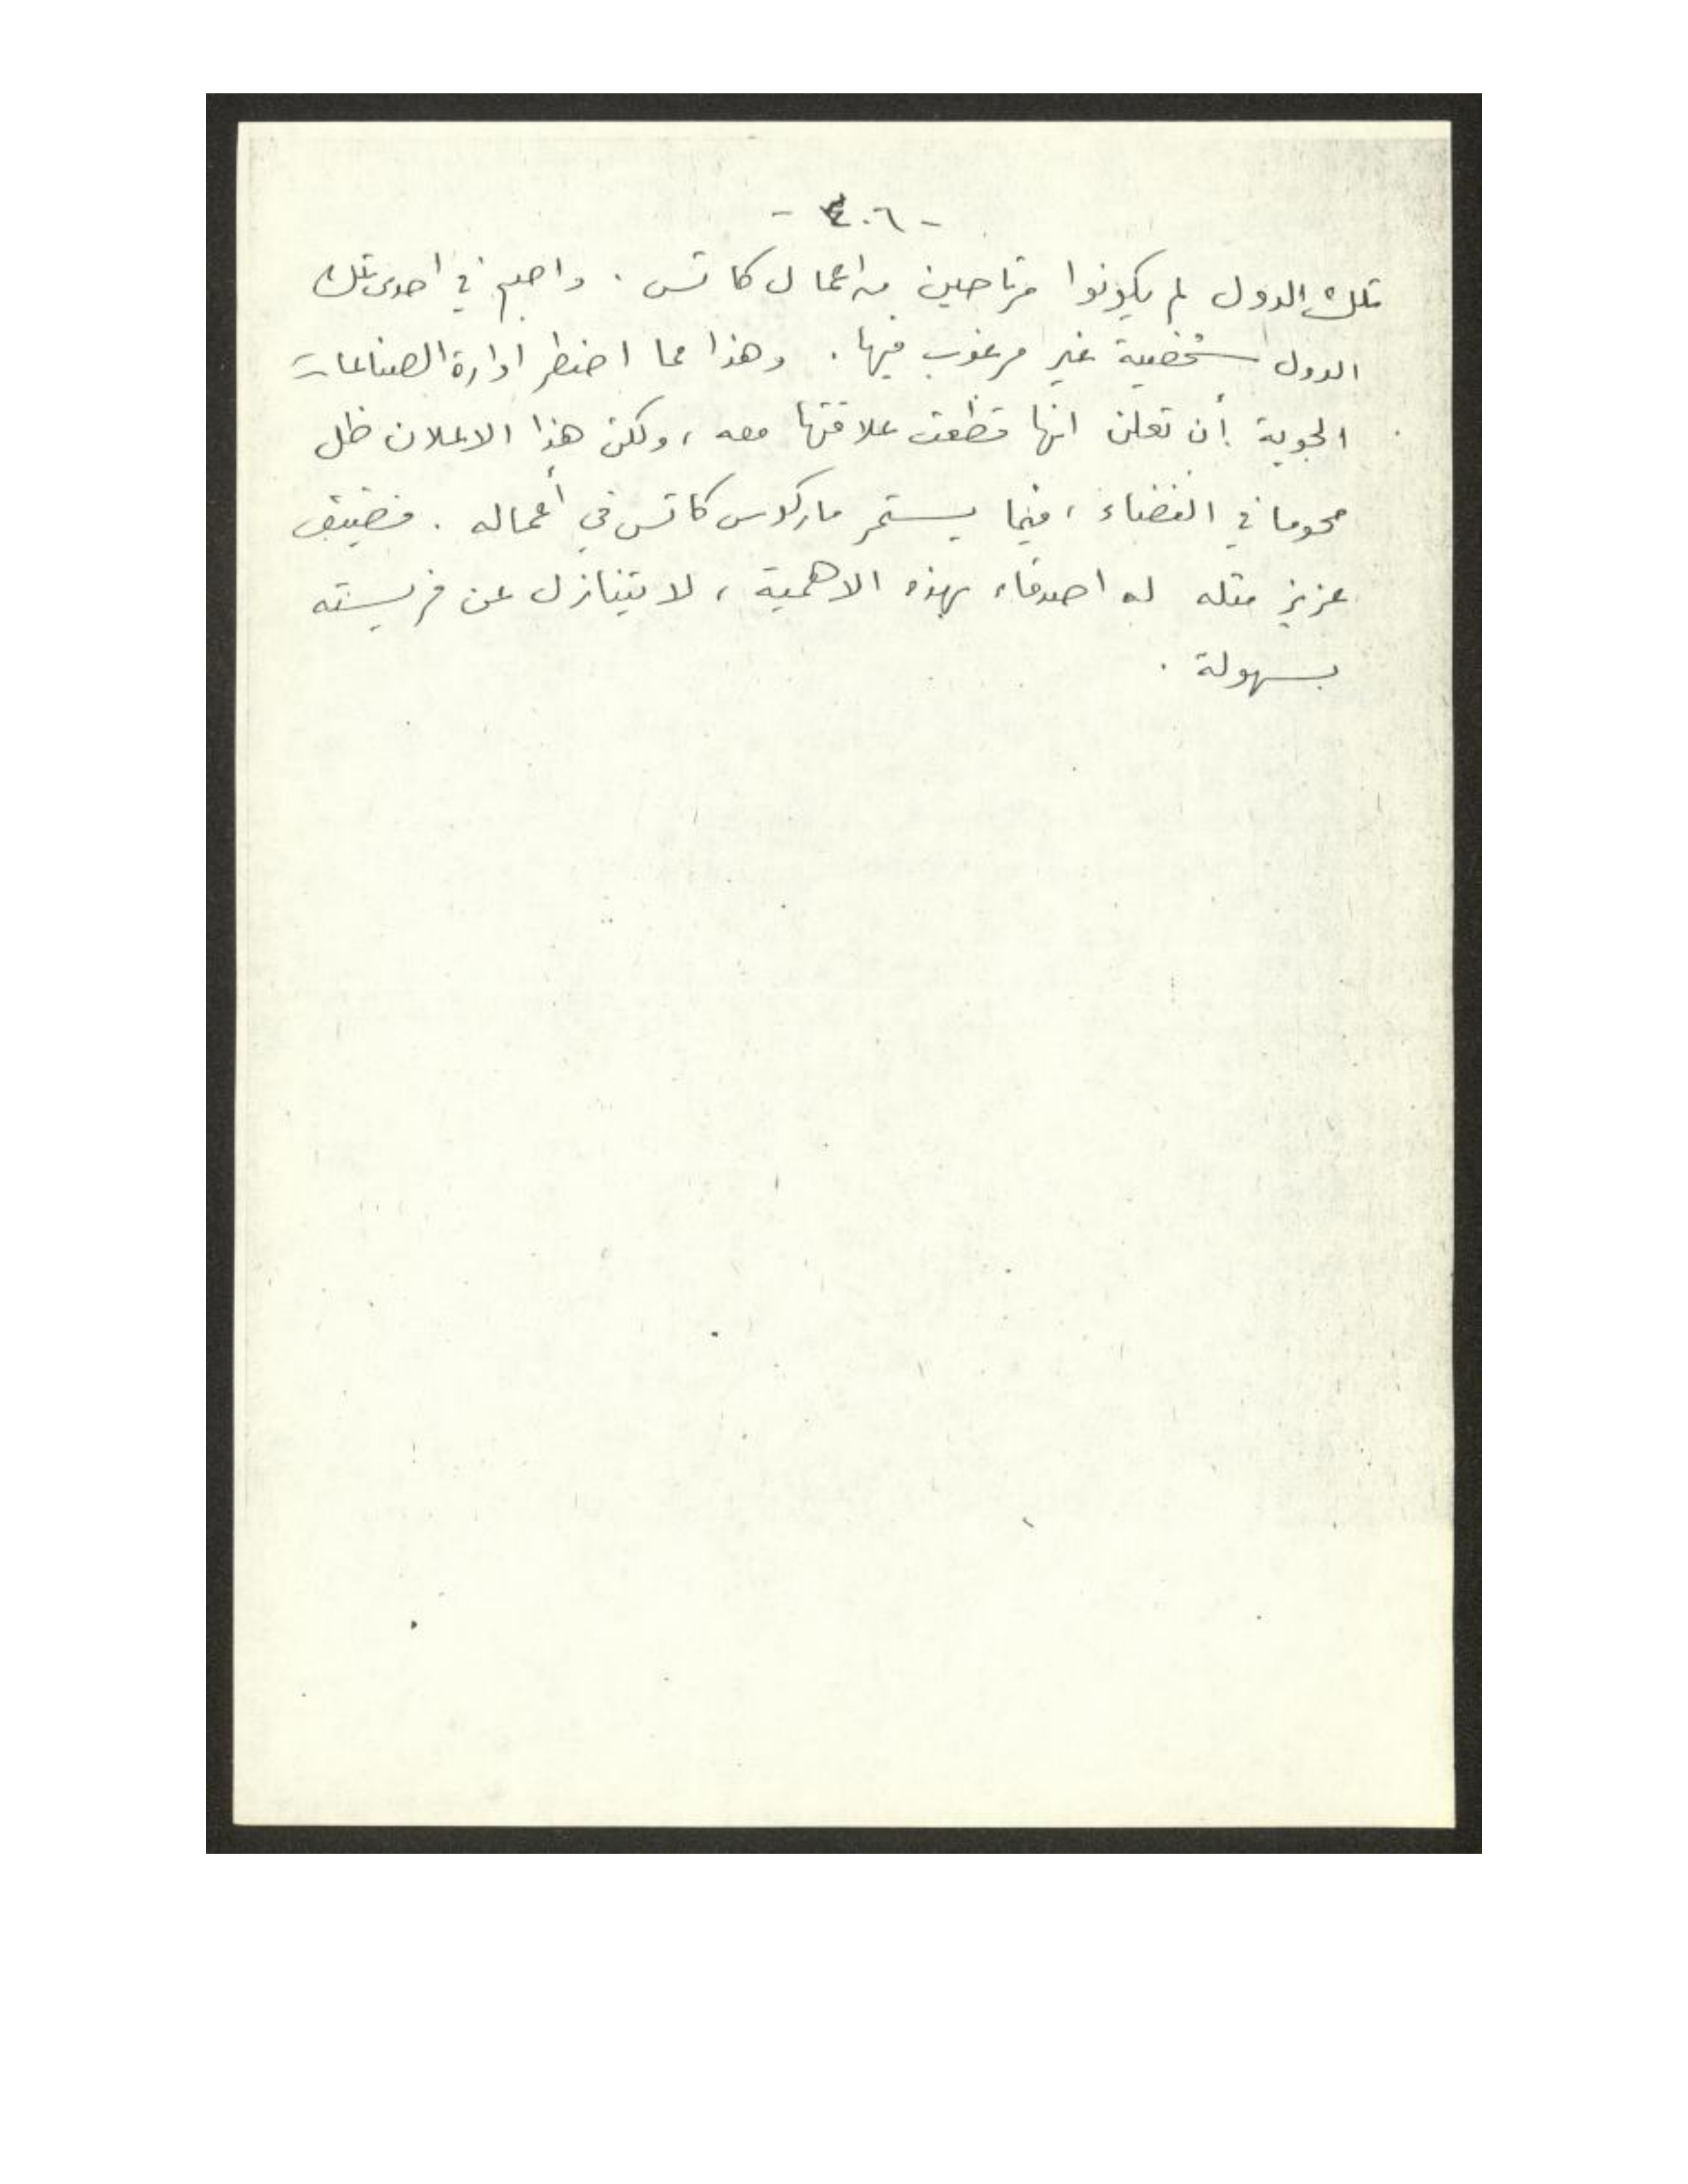 - ٤٠٦ -
تلك الدول لم يكونوا مرتاحين من اعمال كاتس . واصبح في احدى تلك
الدول شخصية غير مرغوب فيها . وهذا مما اضطر ادارة الصناعات
الجوية أن تعلن انها قطعت علاقتها معه ، ولكن هذا الاعلان ظل
محوما في الفضاء ، فيما يستمر ماركوس كاتس في أعماله . فضيف
عزيز مثله له اصدقاء بهذه الاهمية ، لا يتنازل عن فريسته
بسهولة .